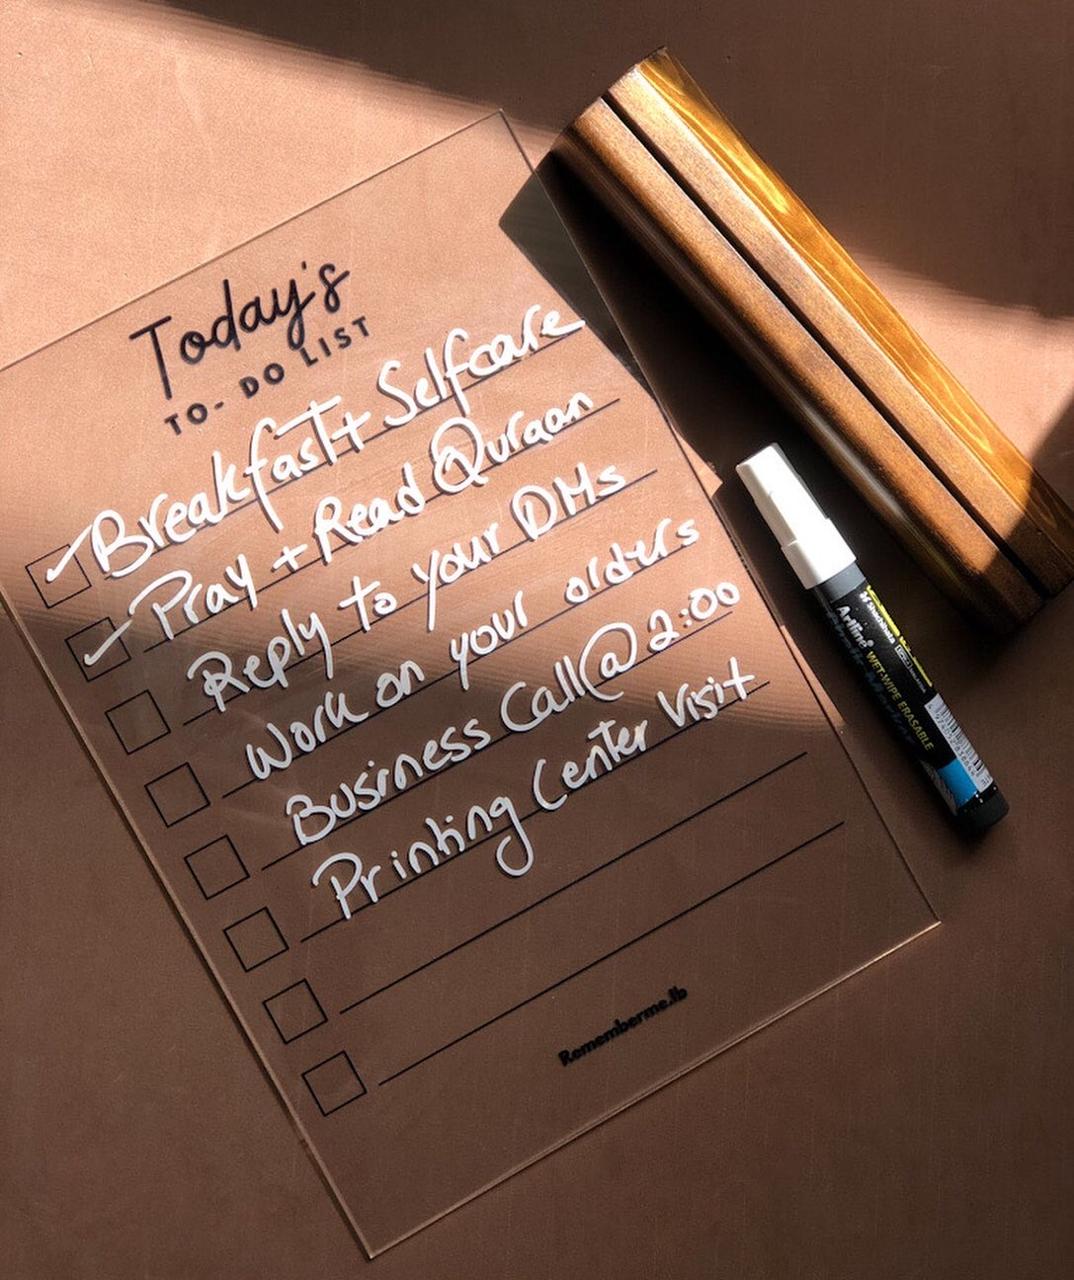 Today's
TO-DO LIST
Breakfast + Selfcare
Pray + Read Quraan
Reply to your DMs
Work on your orders
Business Call@ 2:00
Printing Center Visit
Rememberme.lb
Shachihata
Artline
WET-WIPE ERASABLE